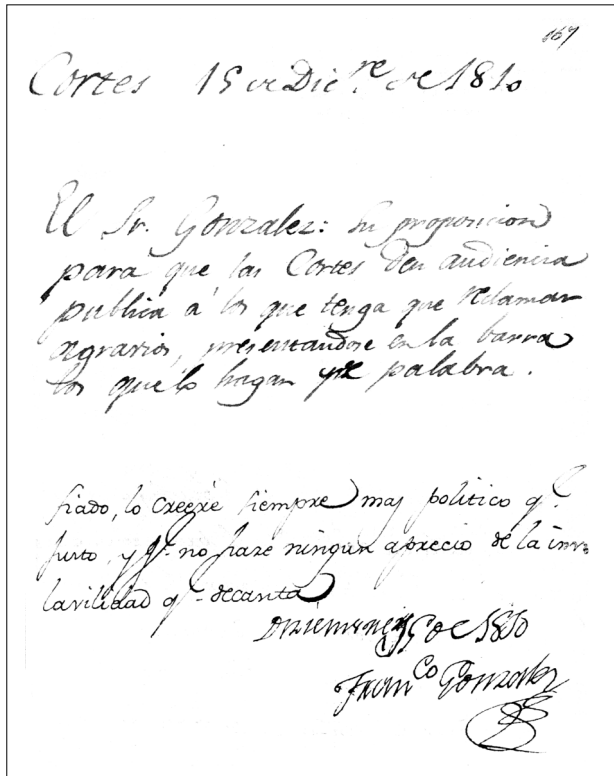 167
Cortes 15 de Dic.re de 1810
El Sr. Gonzalez: su proposicion
para que las Cortes den audiencia
publica á los que tenga que reclamar
agravios, presentandose en la barra
los que lo hagan de palabra.
fiado, lo creeré siempre mas politico q.e
justo, y q.e no haze ningun aprecio de la invio
lavilidad q.e decanta
Diziembre 15 de 1810
Fran.co Gonzalez